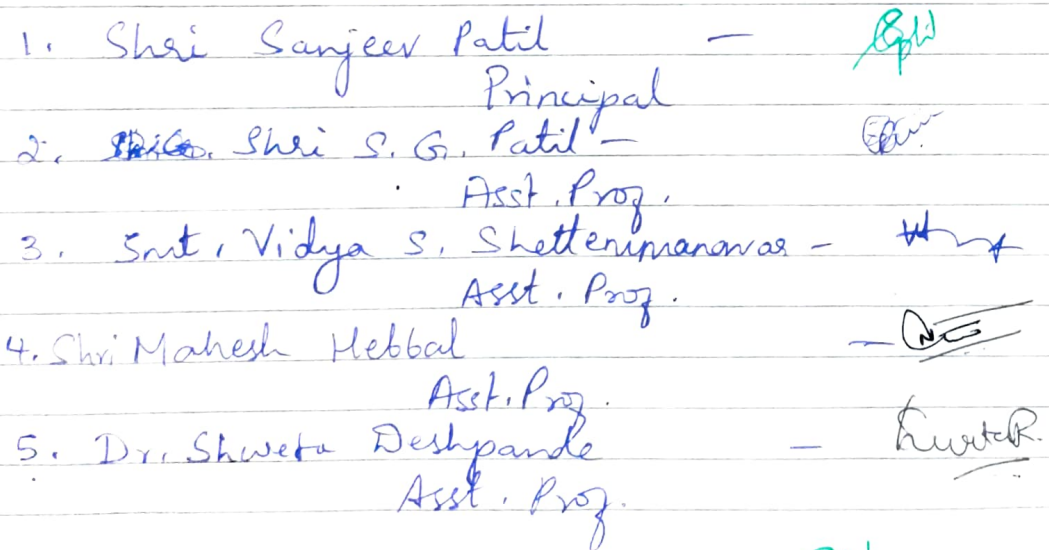 1. Shri Sanjeev Patil -
Principal
2. Shri S. G. Patil -
Asst. Prof.
3. Smt. Vidya S. Shettenimanavar -
Asst. Prof.
4. Shri Mahesh Hebbal -
Asst. Prof.
5. Dr. Shweta Deshpande -
Asst. Prof.